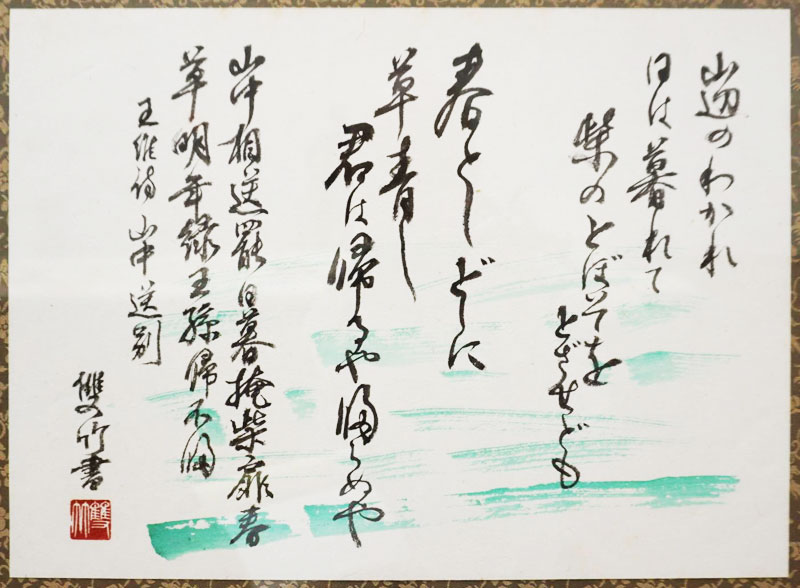 山辺のわかれ
日は暮れて
柴のとぼそを
とざせども
春としどしに
草青し
君は帰るや帰らめや
山中相送罷日暮掩柴扉春
草明年緑王孫帰不帰
王維詩 山中送別
雙竹書
雙竹